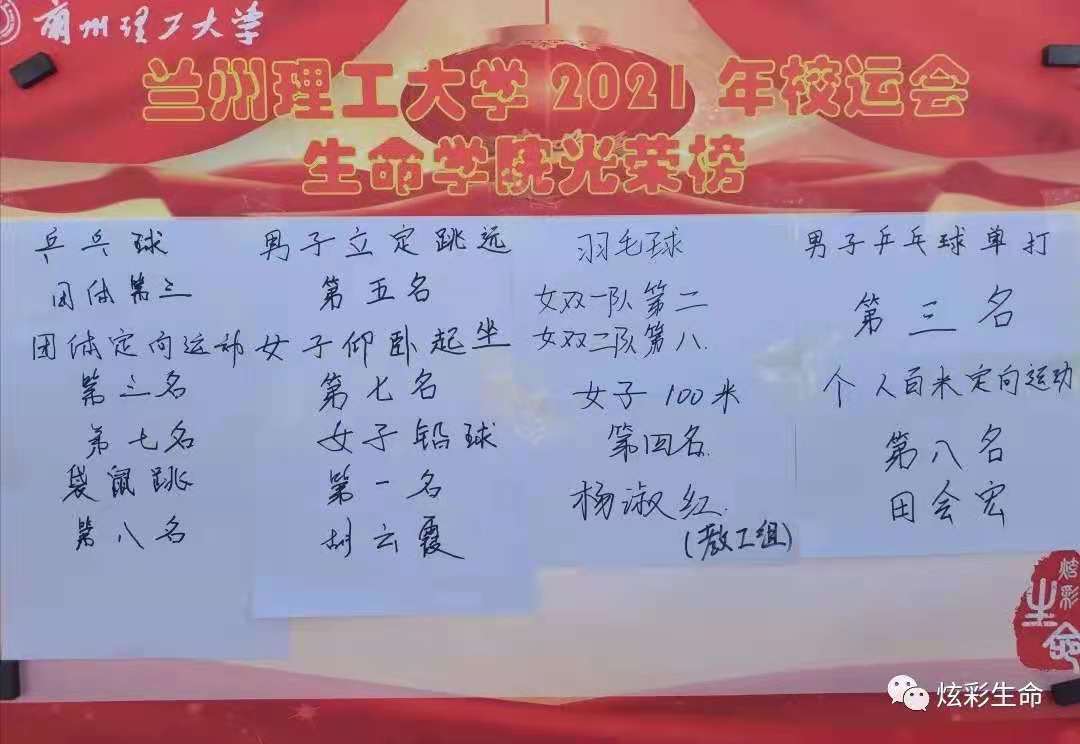 兰州理工大学
兰州理工大学 2021 年校运会
生命学院光荣榜
乒乓球
团体第三
团体定向运动
第三名
第七名
袋鼠跳
第八名
男子立定跳远
第五名
女子仰卧起坐
第七名
女子铅球
第一名
胡云霞
羽毛球
女双一队第二
女双二队第八.
女子 100 米
第四名.
杨淑红.
(教工组)
男子乒乓球单打
第三名
个人百米定向运动
第八名
田会宏
炫彩
生命
炫彩生命